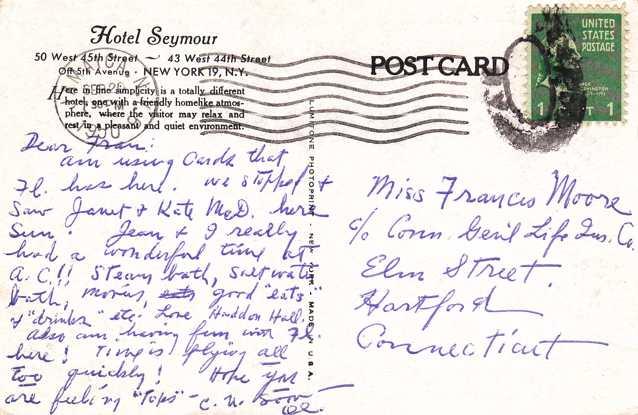 Hotel Seymour
50 West 45th Street ~ 43 West 44th Street
Off 5th Avenue - NEW YORK 19, N.Y.
Here in fine simplicity is a totally different
hotel, one with a friendly homelike atmos-
phere, where the visitor may relax and
rest in a pleasant and quiet environment.
POST CARD
UNITED
STATES
POSTAGE
1 1
LUMITONE PHOTOPRINT - NEW YORK - MADE IN U.S.A.
Dear Fran:
am using cards that
Fl. has here. We stopped &
saw Janet & Kate McD. here
Sun. Jean & I really
had a wonderful time at
A.C!! Steam bath, salt water
bath, movies, eats good "eats"
& "drinks" etc. Love Haddon Hall.
Also am having fun with Fl.
here! Time is flying all
too quickly! Hope you
are feeling "Tops" - C. U. soon
Miss Francis Moore
c/o Conn. Genl Life Ins. Co.
Elm Street.
Hartford
Connecticut